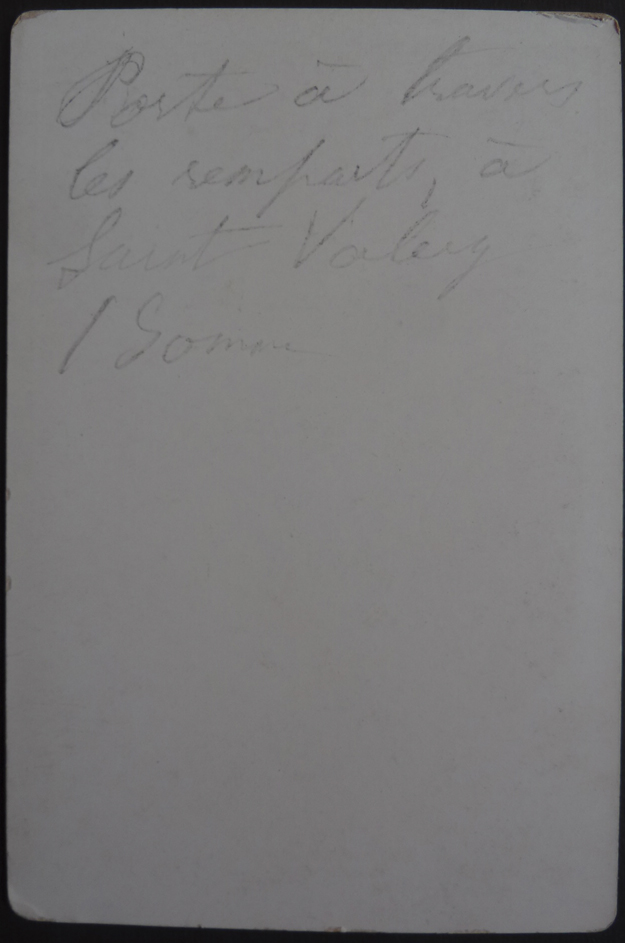 Porte à travers
les remparts, à
Saint Valery
/ Somme